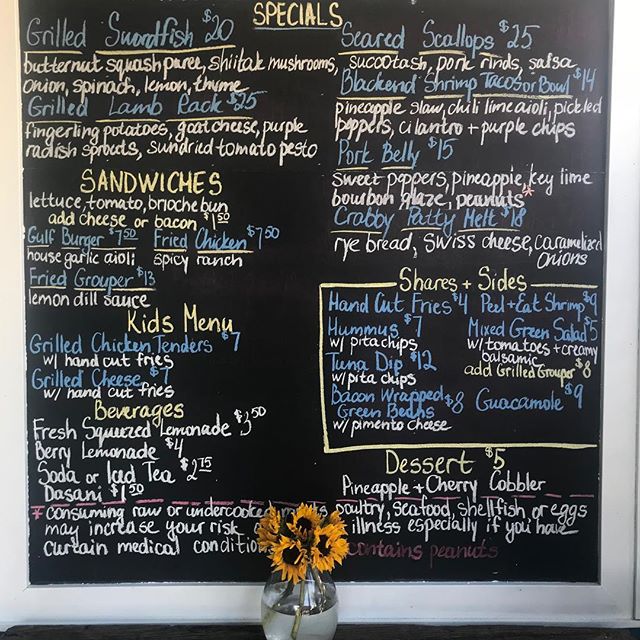 SPECIALS
Grilled Swordfish $20
butternut squash puree, shiitake mushrooms,
onion, spinach, lemon, thyme
Grilled Lamb Rack $25
fingerling potatoes, goat cheese, purple
radish sprouts, sundried tomato pesto
SANDWICHES
lettuce, tomato, brioche bun
add cheese or bacon $1.50
Gulf Burger $7.50 Fried Chicken $7.50
house garlic aioli spicy ranch
Fried Grouper $13
lemon dill sauce
Kids Menu
Grilled Chicken Tenders $7
w/ hand cut fries
Grilled Cheese $7
w/ hand cut fries
Beverages
Fresh Squeezed Lemonade $3.50
Berry Lemonade $4
Soda or Iced Tea $2.75
Dasani $1.50
Seared Scallops $25
succotash, pork rinds, salsa
Blackened Shrimp Tacos or Bowl $14
pineapple slaw, chili lime aioli, pickled
peppers, cilantro + purple chips
Pork Belly $15
sweet peppers, pineapple, key lime
bourbon glaze, peanuts*
Crabby Patty Melt $18
rye bread, swiss cheese, caramelized
onions
Shares + Sides
Hand Cut Fries $4 Peel + Eat Shrimp $9
Hummus $7 Mixed Green Salad $5
w/ pita chips w/ tomatoes + creamy
balsamic
Tuna Dip $12 add Grilled Grouper $8
w/ pita chips
Bacon Wrapped
Green Beans $8 Guacamole $9
w/ pimento cheese
Dessert $5
Pineapple + Cherry Cobbler
* consuming raw or undercooked poultry, seafood, shellfish, or eggs
may increase your risk illness especially if you have
curtain medical contains peanuts